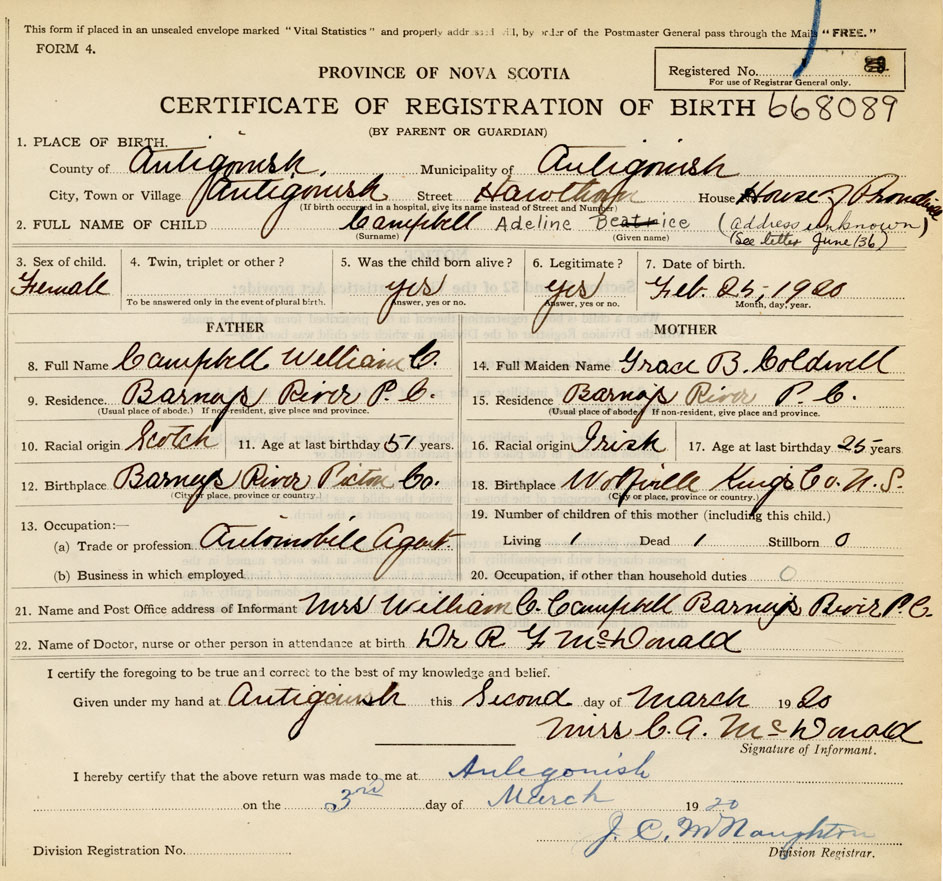 This form if placed in an unsealed envelope marked "Vital Statistics" and properly addressed will, by order of the Postmaster General pass through the Mails "FREE."
FORM 4.
Registered No.
For use of Registrar General only.
PROVINCE OF NOVA SCOTIA
CERTIFICATE OF REGISTRATION OF BIRTH 668089
(BY PARENT OR GUARDIAN)
1. PLACE OF BIRTH.
County of Antigonish. Municipality of Antigonish
City, Town or Village Antigonish Street Hawthorn House House of Providence
(If birth occurred in a hospital, give its name instead of Street and Number)
2. FULL NAME OF CHILD Campbell Adeline Beatrice (address unknown)
(Surname) (Given name) (See letter June/36)
3. Sex of child. 4. Twin, triplet or other? 5. Was the child born alive? 6. Legitimate? 7. Date of birth.
Female yes yes Feb. 25, 1920
To be answered only in the event of plural birth. Answer, yes or no. Answer, yes or no. Month, day, year.
FATHER
8. Full Name Campbell William C.
9. Residence. Barneys River P. C.
(Usual place of abode.) If non-resident, give place and province.
10. Racial origin Scotch 11. Age at last birthday 51 years.
12. Birthplace Barneys River Pictou Co.
(City or place, province or country.)
13. Occupation:—
(a) Trade or profession Automobile Agent.
(b) Business in which employed
MOTHER
14. Full Maiden Name Grace B. Coldwell
15. Residence Barneys River P. C.
(Usual place of abode) If non-resident, give place and province.
16. Racial origin Irish 17. Age at last birthday 25 years
18. Birthplace Wolfville Kings Co. N. S.
(City or place, province or country.)
19. Number of children of this mother (including this child.)
Living 1 Dead 1 Stillborn 0
20. Occupation, if other than household duties 0
21. Name and Post Office address of Informant Mrs William C. Campbell Barneys River P. C.
22. Name of Doctor, nurse or other person in attendance at birth Dr R F McDonald
I certify the foregoing to be true and correct to the best of my knowledge and belief.
Given under my hand at Antigonish this Second day of March 1920
Miss C. A. McDonald
Signature of Informant.
I hereby certify that the above return was made to me at Antigonish
on the 3rd day of March 1920
J. C. McNaughton
Division Registration No. Division Registrar.